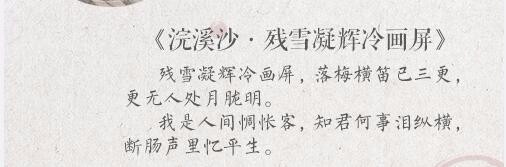 《浣溪沙·残雪凝辉冷画屏》
残雪凝辉冷画屏，落梅横笛已三更，
更无人处月胧明。
我是人间惆怅客，知君何事泪纵横，
断肠声里忆平生。